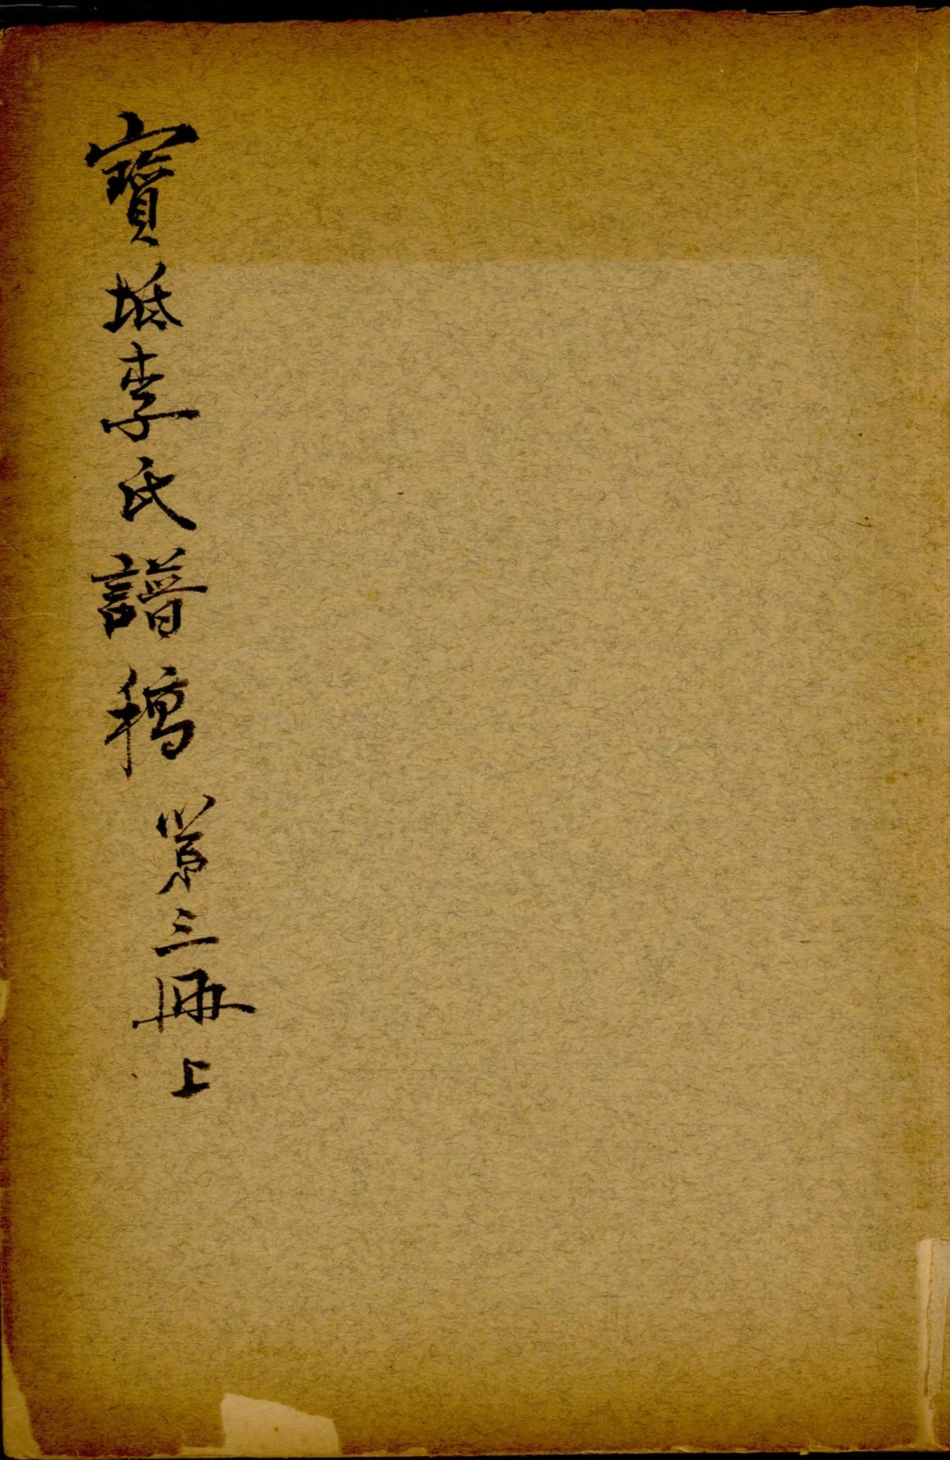 寶坻李氏譜稿 第三冊上